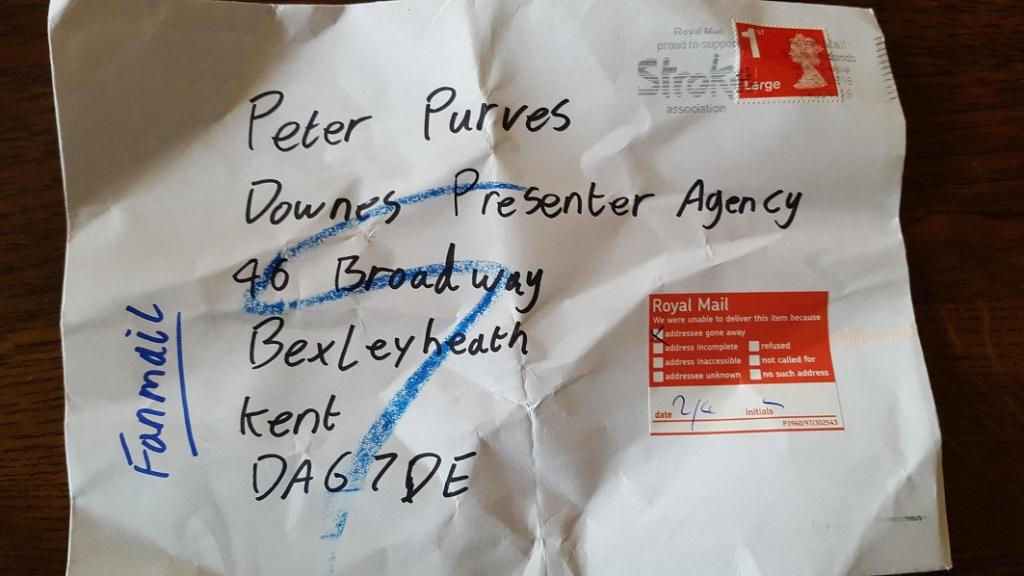 Royal Mail
proud to support
Stroke
association
1ST
Large
Peter Purves
Downes Presenter Agency
46 Broadway
Bexleyheath
Kent
DA6 7DE
Fanmail
Royal Mail
We were unable to deliver this item because
addressee gone away
address incomplete
refused
address inaccessible
not called for
addressee unknown
no such address
date 2/4 initials
P3960/97/302543